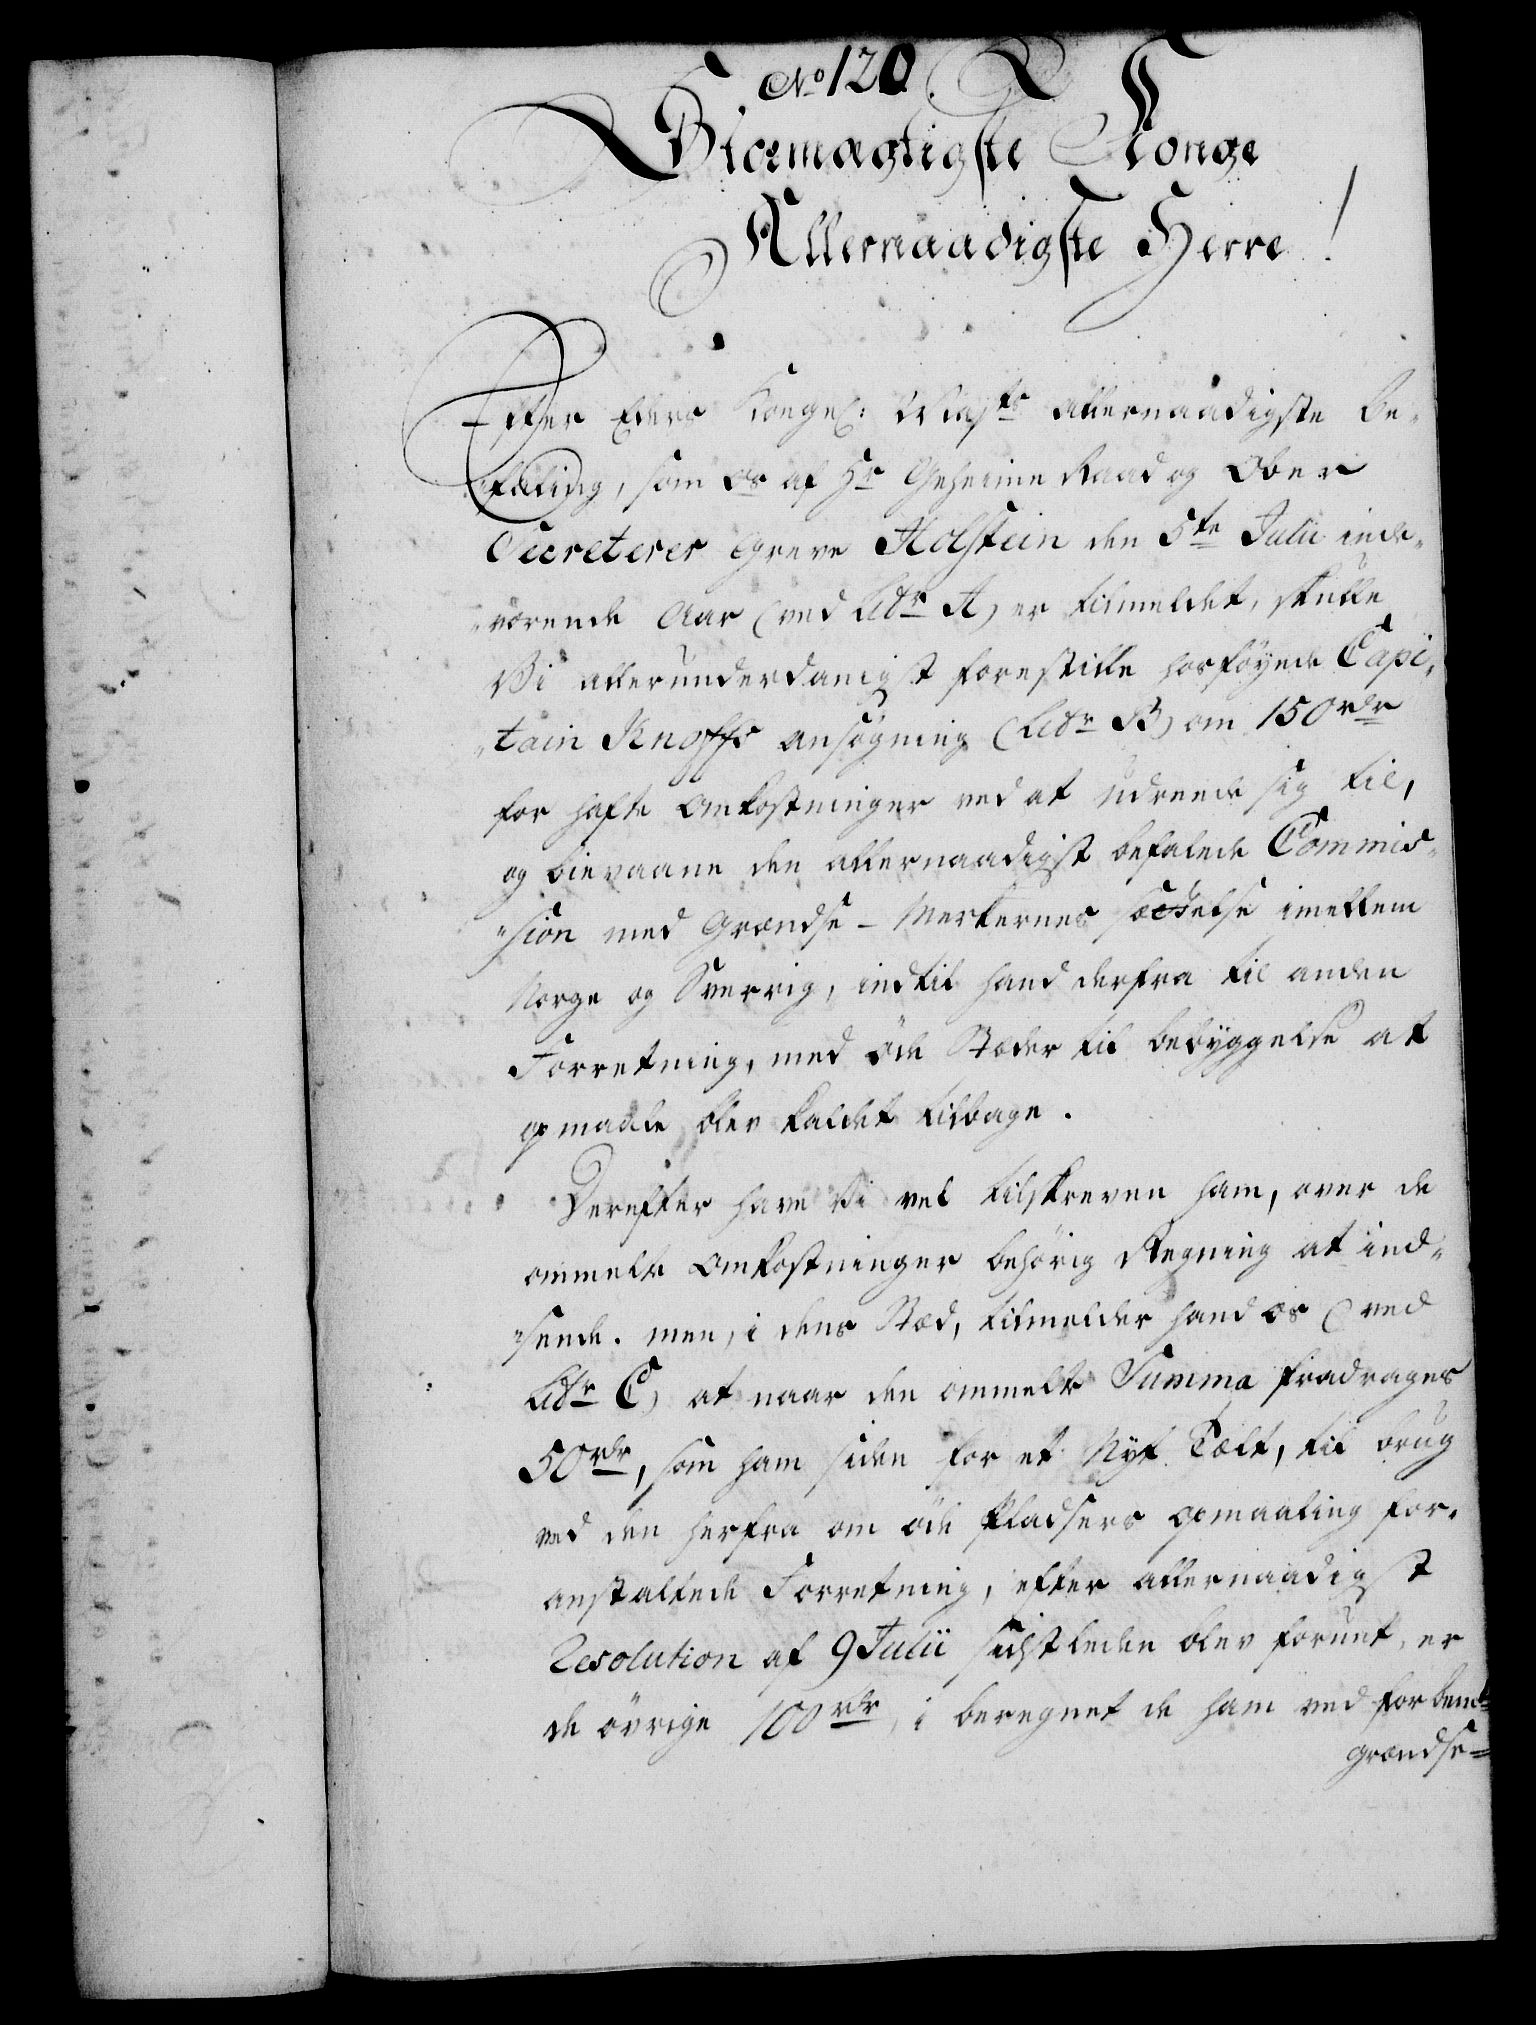 No 120.
Stormægtigste Konge
Allernaadigste Herre!
Efter Eders Kongel: Mayts allernaadigste be-
faling, som os af Hr Geheime Raad og Ober
Secreterer Greve Holstein den 5te Julii inde-
værende Aar (ved Litr A) er tilmeldet, skulle
Vi allerunderdanigst forestille hosföyede Capi-
tain Knoffs ansögning (Litr B) om 150 rdr
for hafte Omkostninger ved at udreede sig til,
og bievaane den allernaadigst befalede Commis-
sion med Grændse-Merkernes sættelse imellem
Norge og Sverrig, indtil hand derfra til anden
Forretning, med öde Stæder til bebyggelse at
opmaale blev kaldet tilbage.
Derefter have Vi vel tilskreven ham, over de
ommelte Omkostninger behörig Regning at ind-
sende. men, i dens Stæd, tilmelder hand os (ved
Litr C) at naar den ommelte Summa fradrages
50 rdr, som ham siden for et Nyt Telt, til brug
ved den herfra om öde Pladsers opmaaling for-
anstaltede Forretning, efter allernaadigst
Resolution af 9 Julii sidstleden blev forunt, er
de övrige 100 rdr, i beregnet de ham ved forbemte
grændse-